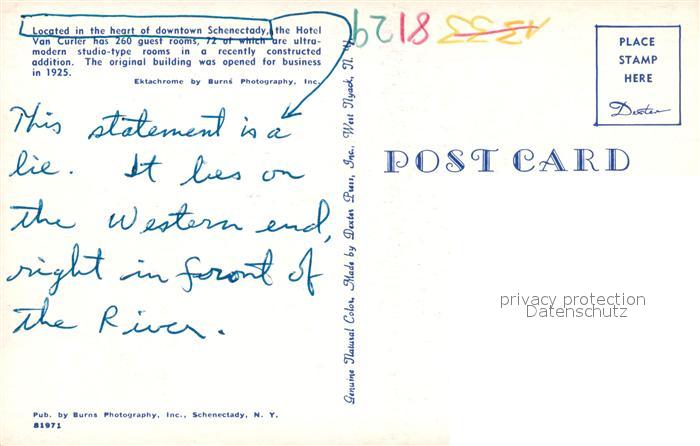 Located in the heart of downtown Schenectady, the Hotel
Van Curler has 260 guest rooms, 72 of which are ultra-
modern studio-type rooms in a recently constructed
addition. The original building was opened for business
in 1925.
Ektachrome by Burns Photography, Inc.
This statement is a
lie. It lies on
the Western end,
right in front of
the River.
Pub. by Burns Photography, Inc., Schenectady, N. Y.
81971
Genuine Natural Color, Made by Dexter Press, Inc., West Nyack, N. Y.
PLACE
STAMP
HERE
Dexter
POST CARD
privacy protection
Datenschutz